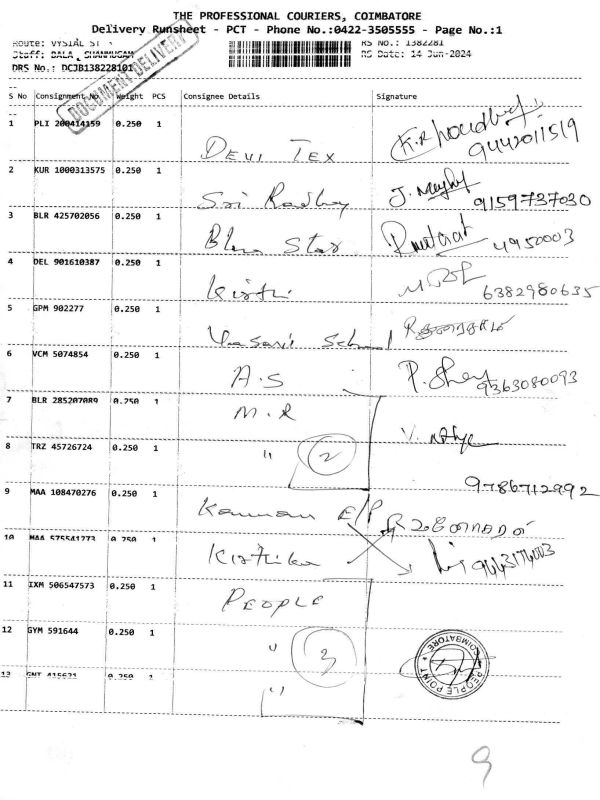 THE PROFESSIONAL COURIERS, COIMBATORE
Delivery Runsheet - PCT - Phone No.:0422-3505555 - Page No.:1
Route: VYSIAL ST
RS No.: 1382281
Staff: BALA, SHANMUGAM
RS Date: 14 Jun-2024
DRS No.: DCJB138228101
DOCUMENT DELIVERY
S No Consignment No Weight PCS Consignee Details Signature
1 PLI 200414159 0.250 1 DEVI TEX 9442011519
2 KUR 1000313575 0.250 1 Sri 9159737030
3 BLR 425702056 0.250 1 Star 4950003
4 DEL 901610387 0.250 1 Kirthi 6382980635
5 GPM 902277 0.250 1
6 VCM 5074854 0.250 1 A.S 9363080093
7 BLR 285207089 0.250 1 M.R
8 TRZ 45726724 0.250 1 " 2
9786712992
9 MAA 108470276 0.250 1 Kannan E/P
10 MAA 575541773 0.250 1 Kirthika
11 IXM 506547573 0.250 1 PEOPLE
12 GYM 591644 0.250 1 " 3
13 GNT 415621 0.250 1 "
PEOPLE POINT * COIMBATORE *
9